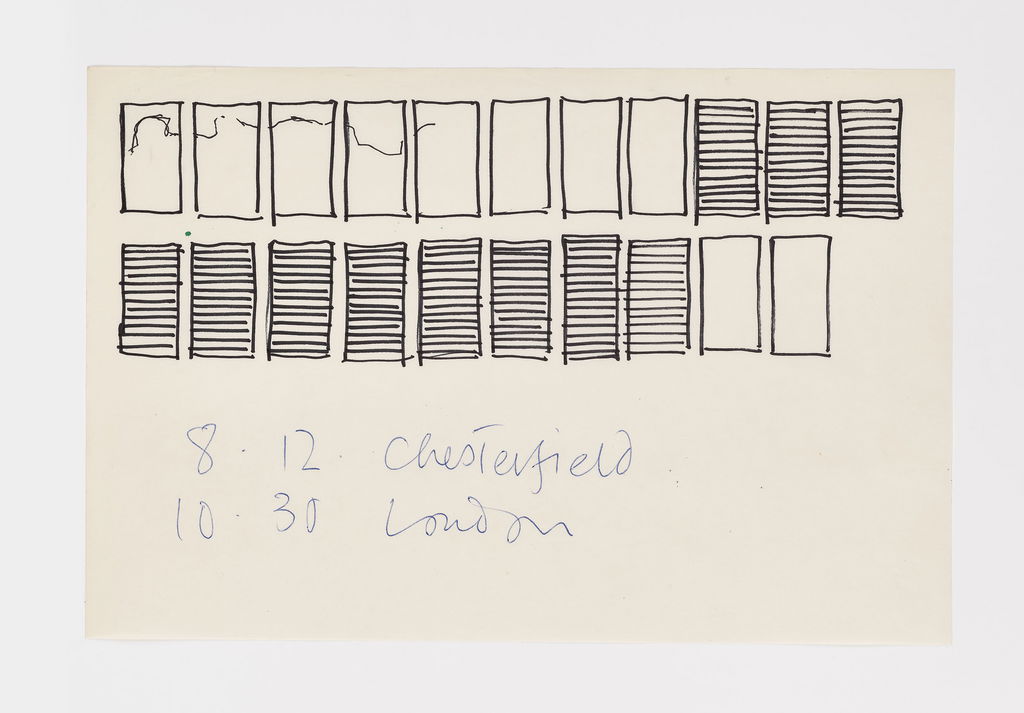 8 . 12 . Chesterfield
10 . 30 London